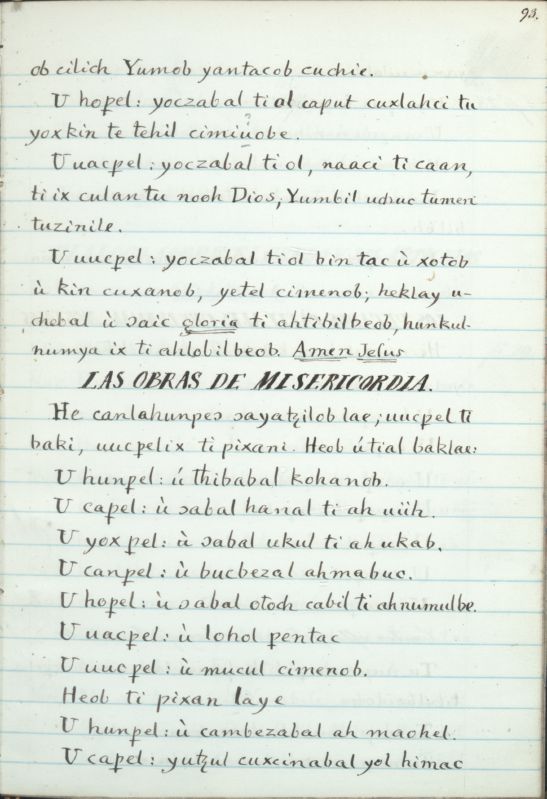 93.
ob cilich Yumob yantacob cuchie.
U hoꝑel: yoczabal ti ol caput cuxlahci tu
yoxkin te tehil cimiuobe.
U uacꝑel: yoczabal ti ol, naaci ti caan,
ti ix culan tu nooh Dios, Yumbil
tuzinile.
U uucꝑel: yoczabal ti ol bin tac ù xotob
ù kin cuxanob, yetel cimenob; heklay u-
chebal ù ɔaic gloria ti ahtibilbeob, hunkul-
numya ix ti ahlobilbeob. Amen Jesus
LAS OBRAS DE MISERICORDIA.
He canlahunpeɔ ɔayatꜩilob lae; uucꝑel ti
baki, uucꝑelix ti pixani. Heob útial baklae:
U hunꝑel: ú thibabal kohanob.
U caꝑel: ù ɔabal hanal ti ah uiih.
U yoxꝑel: ù ɔabal ukul ti ah ukab.
U canꝑel: ù bucbezal ahmabuc.
U hoꝑel: ù ɔabal otoch cabil ti ahnumulbe.
U uacꝑel: ù lohol ꝑentac
U uucꝑel: ù mucul cimenob.
Heob ti pixan laye
U hunꝑel: ù cambezabal ah maohel.
U caꝑel: yutꜩul cuxcinabal yol himac